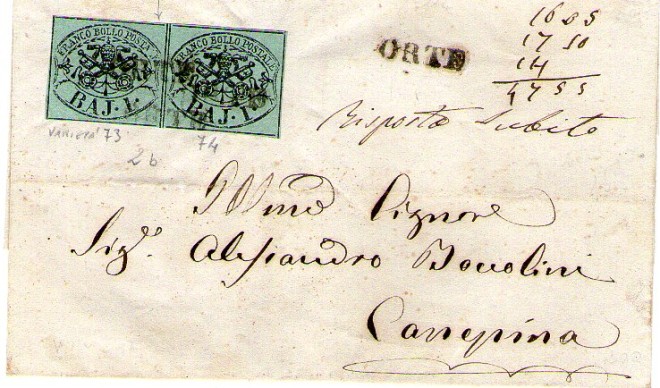 FRANCO BOLLO POSTALE
BAJ. 1.
FRANCO BOLLO POSTALE
BAJ. 1.
ORTE
1685
1710
14
4755
VARIETA' 73
74
2b
Risposta Subito
Illmo Signore
Sigr. Alessandro Bovolini
Canepina